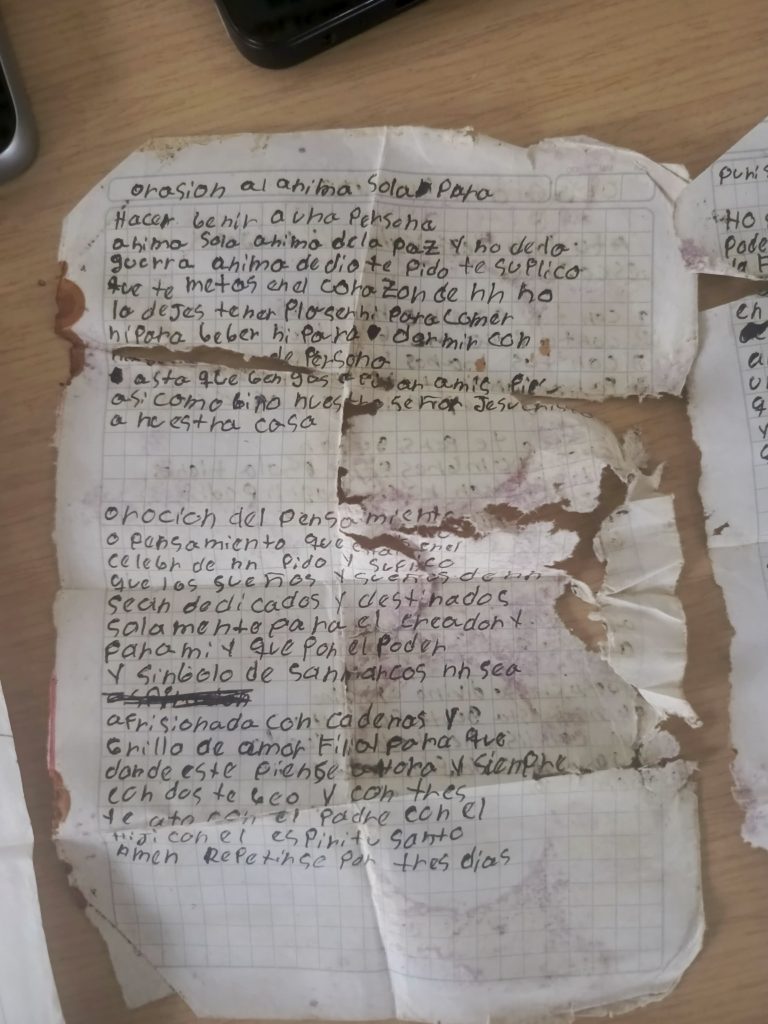 orasion al anima sola para
Hacer benir a una Persona
anima sola anima de la paz y no de la
guerra anima de dio te pido te suplico
que te metas en el corazon de nn no
lo dejes tener Plaser ni Para comer
ni Para beber ni Para dormir con
de Persona
asta que bengas a mis
asi como bino nuestro señor Jesucristo
a nuestra casa
orocion del Pensamiento
o pensamiento que
celebr de nn Pido y suplico
que los sueños y sueños de nn
sean dedicados y destinados
solamente para el creador y
para mi y que por el Poder
y sinbolo de san marcos nn sea
afrisionada con cadenas y
Grillo de amor Filial para que
donde este piense ahora y siempre
con dos te beo y con tres
te ato con el Padre con el
Hiji con el espiritu santo
Amen Repetirse por tres dias
puris
HO
Pode
la F
en
a
u
q
y